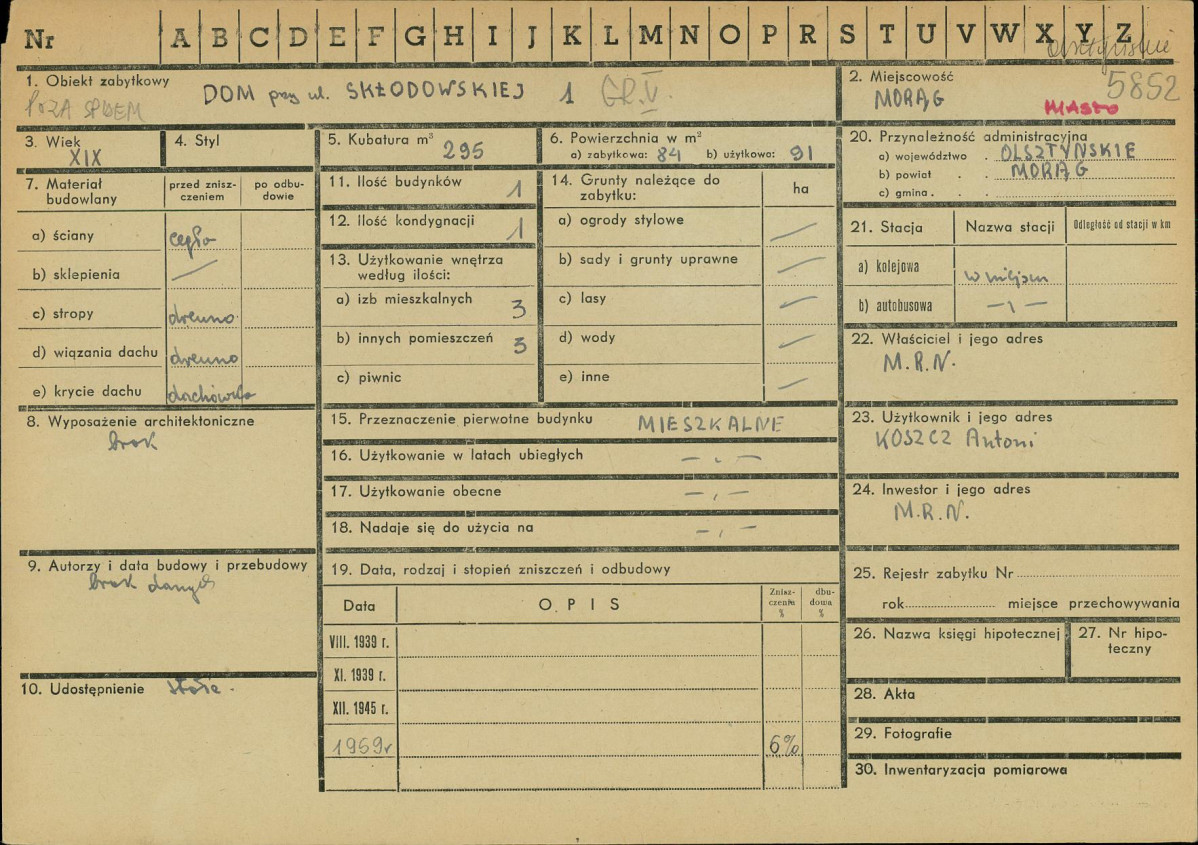 Nr A B C D E F G H I J K L M N O P R S T U V W X Y Z
1. Obiekt zabytkowy DOM przy ul. SKŁODOWSKIEJ 1 GR. V.
POZA SPISEM
2. Miejscowość 5852
MORĄG MIASTO
3. Wiek
XIX
4. Styl
5. Kubatura m³ 295
6. Powierzchnia w m²
a) zabytkowa: 84 b) użytkowa: 91
20. Przynależność administracyjna
a) województwo . OLSZTYŃSKIE
b) powiat . . MORĄG
c) gmina . . .
7. Materiał budowlany
przed zniszczeniem
po odbudowie
a) ściany cegła
b) sklepienia —
c) stropy drewno
d) wiązania dachu drewno
e) krycie dachu dachówka
11. Ilość budynków 1
12. Ilość kondygnacji 1
13. Użytkowanie wnętrza
według ilości:
a) izb mieszkalnych 3
b) innych pomieszczeń 3
c) piwnic
14. Grunty należące do
zabytku:
ha
a) ogrody stylowe —
b) sady i grunty uprawne —
c) lasy —
d) wody —
e) inne —
21. Stacja Nazwa stacji Odległość od stacji w km
a) kolejowa w miejscu
b) autobusowa — „ —
22. Właściciel i jego adres
M.R.N.
8. Wyposażenie architektoniczne
brak
15. Przeznaczenie pierwotne budynku MIESZKALNE
16. Użytkowanie w latach ubiegłych — „ —
17. Użytkowanie obecne — „ —
18. Nadaje się do użycia na — „ —
23. Użytkownik i jego adres
KOSZCZ Antoni
24. Inwestor i jego adres
M.R.N.
9. Autorzy i data budowy i przebudowy
brak danych
19. Data, rodzaj i stopień zniszczeń i odbudowy
Data OPIS Zniszczenia % dbudowa %
VIII. 1939 r.
XI. 1939 r.
XII. 1945 r.
1959 r 6%
10. Udostępnienie stałe.
25. Rejestr zabytku Nr
rok miejsce przechowywania
26. Nazwa księgi hipotecznej
27. Nr hipoteczny
28. Akta
29. Fotografie
30. Inwentaryzacja pomiarowa